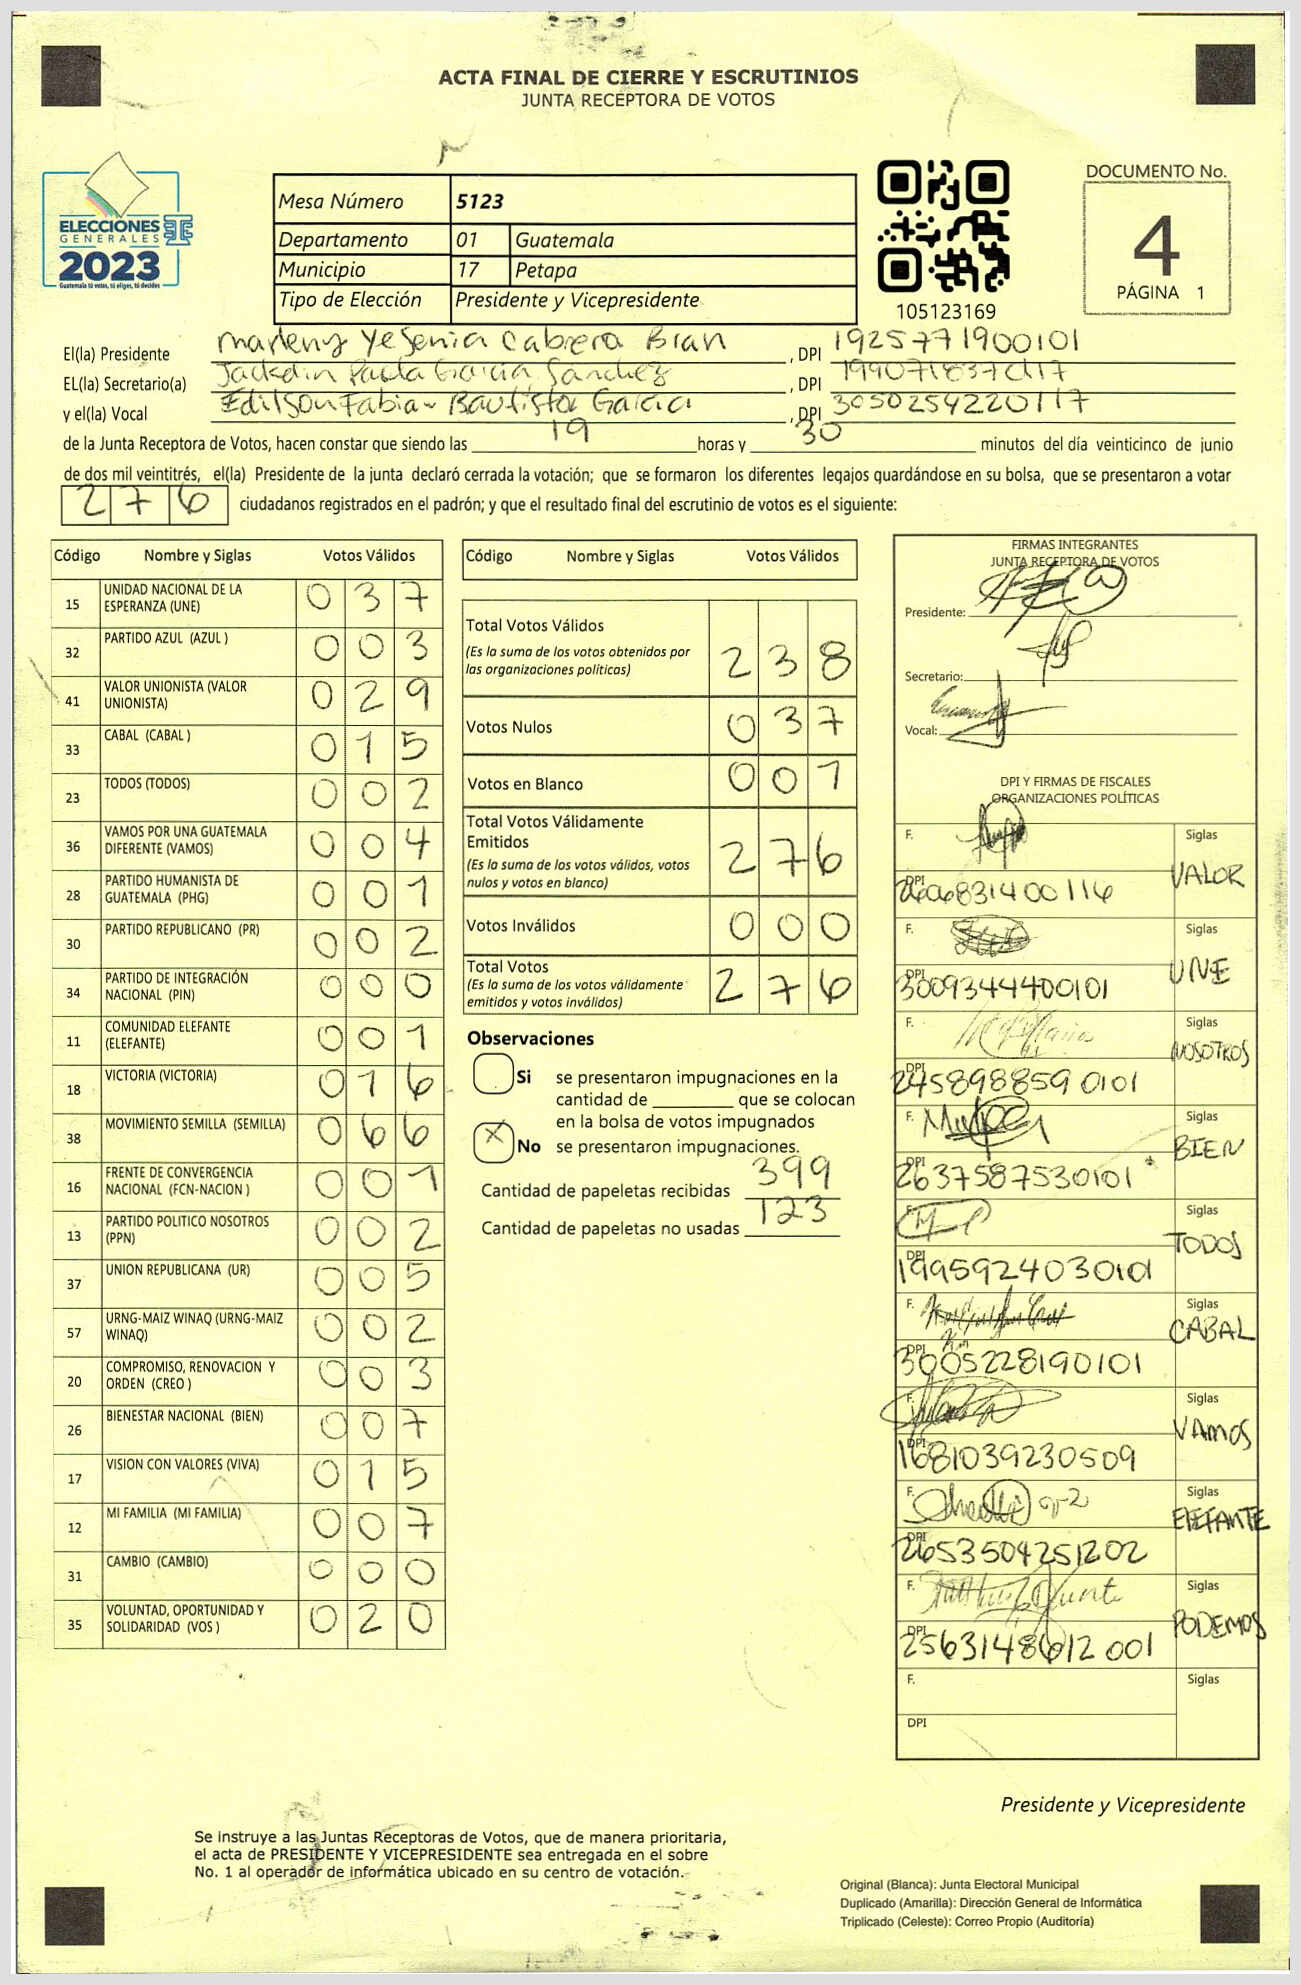 ACTA FINAL DE CIERRE Y ESCRUTINIOS
JUNTA RECEPTORA DE VOTOS
ELECCIONES
GENERALES
2023
Guatemala tú votas, tú eliges, tú decides
Mesa Número 5123
Departamento 01 Guatemala
Municipio 17 Petapa
Tipo de Elección Presidente y Vicepresidente
105123169
DOCUMENTO No.
4
PÁGINA 1
El(la) Presidente Marleny Yesenia Cabrera Bran , DPI 1925771900101
EL(la) Secretario(a) Paola García Sánchez , DPI
y el(la) Vocal Edilson Fabian Bautista García , DPI 3050254220117
de la Junta Receptora de Votos, hacen constar que siendo las 19 horas y 30 minutos del día veinticinco de junio
de dos mil veintitrés, el(la) Presidente de la junta declaró cerrada la votación; que se formaron los diferentes legajos guardándose en su bolsa, que se presentaron a votar
276 ciudadanos registrados en el padrón; y que el resultado final del escrutinio de votos es el siguiente:
Código Nombre y Siglas Votos Válidos
15 UNIDAD NACIONAL DE LA ESPERANZA (UNE) 037
32 PARTIDO AZUL (AZUL ) 003
41 VALOR UNIONISTA (VALOR UNIONISTA) 029
33 CABAL (CABAL ) 015
23 TODOS (TODOS) 002
36 VAMOS POR UNA GUATEMALA DIFERENTE (VAMOS) 004
28 PARTIDO HUMANISTA DE GUATEMALA (PHG) 001
30 PARTIDO REPUBLICANO (PR) 002
34 PARTIDO DE INTEGRACIÓN NACIONAL (PIN) 000
11 COMUNIDAD ELEFANTE (ELEFANTE) 001
18 VICTORIA (VICTORIA) 016
38 MOVIMIENTO SEMILLA (SEMILLA) 066
16 FRENTE DE CONVERGENCIA NACIONAL (FCN-NACION ) 001
13 PARTIDO POLITICO NOSOTROS (PPN) 002
37 UNION REPUBLICANA (UR) 005
57 URNG-MAIZ WINAQ (URNG-MAIZ WINAQ) 002
20 COMPROMISO, RENOVACION Y ORDEN (CREO ) 003
26 BIENESTAR NACIONAL (BIEN) 007
17 VISION CON VALORES (VIVA) 015
12 MI FAMILIA (MI FAMILIA) 007
31 CAMBIO (CAMBIO) 000
35 VOLUNTAD, OPORTUNIDAD Y SOLIDARIDAD (VOS ) 020
Código Nombre y Siglas Votos Válidos
Total Votos Válidos 238
(Es la suma de los votos obtenidos por
las organizaciones políticas)
Votos Nulos 037
Votos en Blanco 001
Total Votos Válidamente
Emitidos 276
(Es la suma de los votos válidos, votos
nulos y votos en blanco)
Votos Inválidos 000
Total Votos 276
(Es la suma de los votos válidamente
emitidos y votos inválidos)
Observaciones
Si se presentaron impugnaciones en la
cantidad de ________ que se colocan
en la bolsa de votos impugnados
X No se presentaron impugnaciones.
Cantidad de papeletas recibidas 399
Cantidad de papeletas no usadas 123
FIRMAS INTEGRANTES
JUNTA RECEPTORA DE VOTOS
Presidente:
Secretario:
Vocal:
DPI Y FIRMAS DE FISCALES
ORGANIZACIONES POLÍTICAS
F. Siglas VALOR
DPI
F. Siglas UNE
DPI 3009344400101
F. Siglas NOSOTROS
DPI 2458988590101
F. Siglas BIEN
DPI 2637587530101
F. Siglas TODOS
DPI 1995924030101
F. Siglas CABAL
DPI 3005228190101
F. Siglas VAMOS
DPI 1681039230509
F. Siglas ELEFANTE
DPI 2653504251202
F. Siglas PODEMOS
DPI 2563148612001
F. Siglas
DPI
Presidente y Vicepresidente
Se instruye a las Juntas Receptoras de Votos, que de manera prioritaria,
el acta de PRESIDENTE Y VICEPRESIDENTE sea entregada en el sobre
No. 1 al operador de informática ubicado en su centro de votación.
Original (Blanca): Junta Electoral Municipal
Duplicado (Amarilla): Dirección General de Informática
Triplicado (Celeste): Correo Propio (Auditoría)